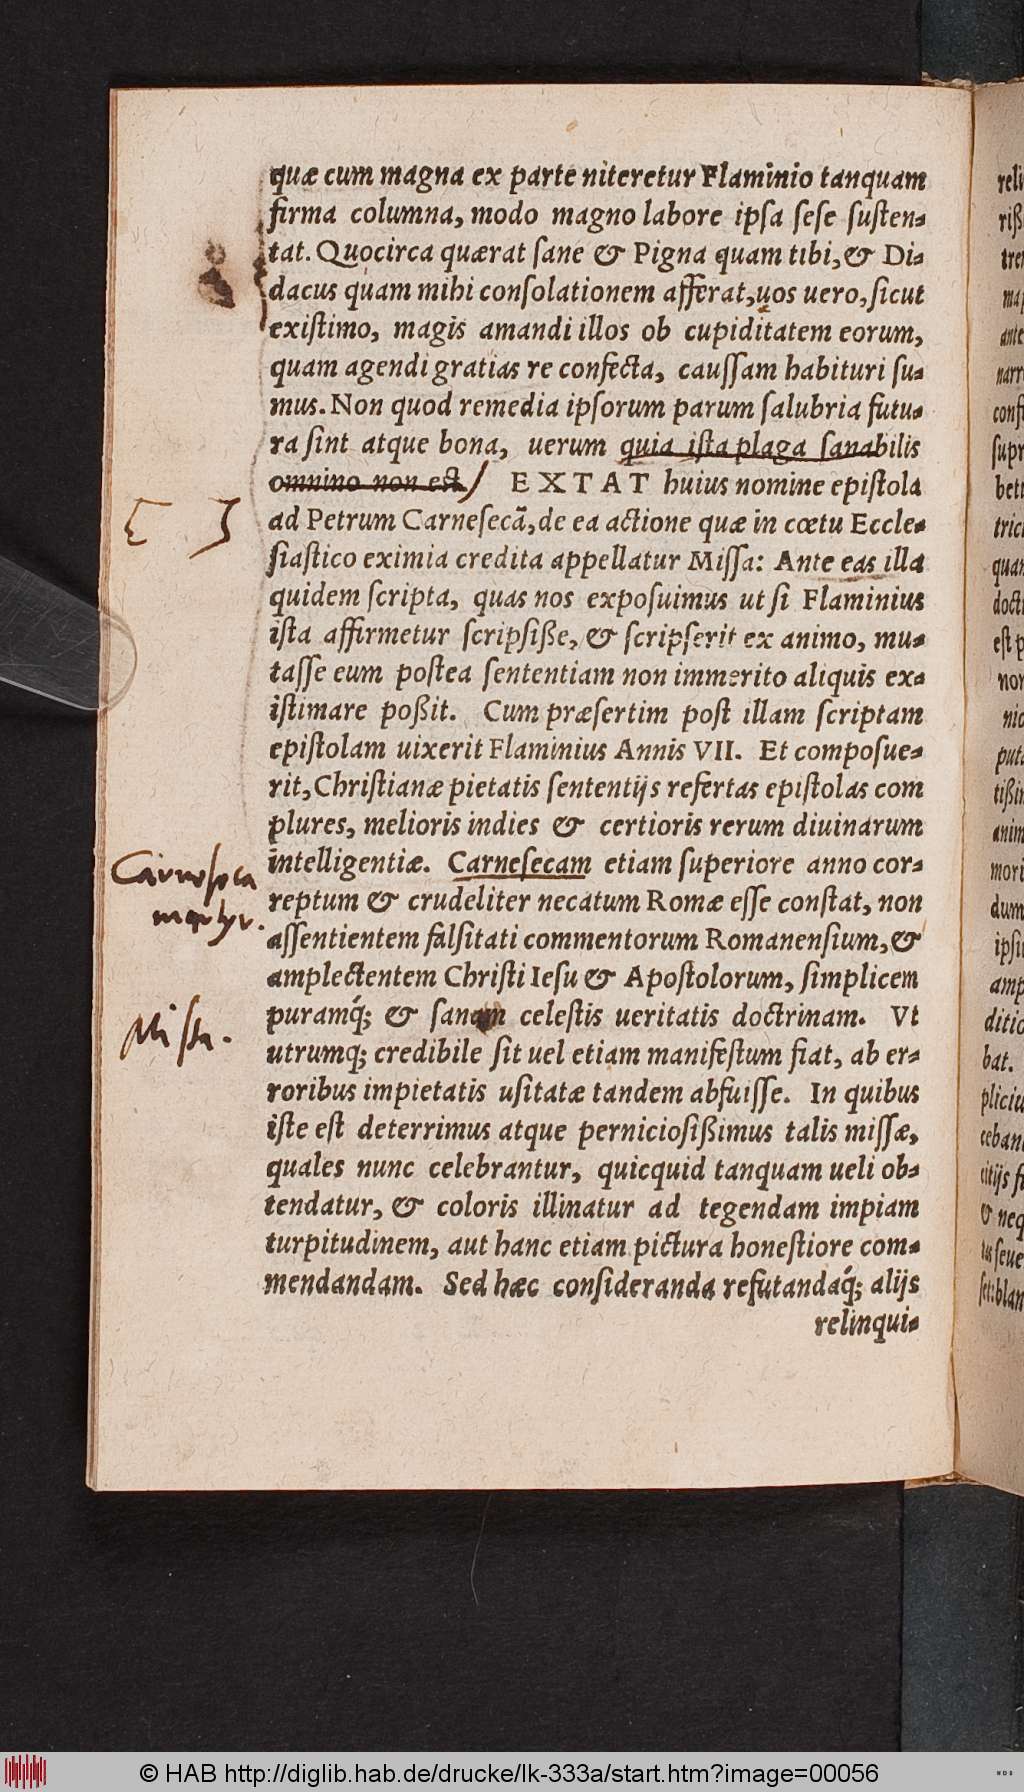 quæ cum magna ex parte niteretur Flaminio tanquam
firma columna, modo magno labore ipsa sese susten-
tat. Quocirca quærat sane & Pigna quam tibi, & Di-
dacus quam mihi consolationem afferat, uos uero, sicut
existimo, magis amandi illos ob cupiditatem eorum,
quam agendi gratias re confecta, caussam habituri su-
mus. Non quod remedia ipsorum parum salubria futu-
ra sint atque bona, uerum quia ista plaga sanabilis
omnino non est. EXTAT huius nomine epistola
ad Petrum Carnesecã, de ea actione quæ in cœtu Eccle-
siastico eximia credita appellatur Missa: Ante eas illa
quidem scripta, quas nos exposuimus ut si Flaminius
ista affirmetur scripsiße, & scripserit ex animo, mu-
tasse eum postea sententiam non immerito aliquis ex-
istimare poßit. Cum præsertim post illam scriptam
epistolam uixerit Flaminius Annis VII. Et composue-
rit, Christianæ pietatis sententijs refertas epistolas com
plures, melioris indies & certioris rerum diuinarum
intelligentiæ. Carnesecam etiam superiore anno cor-
reptum & crudeliter necatum Romæ esse constat, non
assentientem falsitati commentorum Romanensium, &
amplectentem Christi Iesu & Apostolorum, simplicem
puramq́; & sanam celestis ueritatis doctrinam. Vt
utrumq; credibile sit uel etiam manifestum fiat, ab er-
roribus impietatis usitatæ tandem abfuisse. In quibus
iste est deterrimus atque perniciosißimus talis missæ,
quales nunc celebrantur, quicquid tanquam ueli ob-
tendatur, & coloris illinatur ad tegendam impiam
turpitudinem, aut hanc etiam pictura honestiore com-
mendandam. Sed hæc consideranda refutandaq́; alijs
relinqui-
Carneseca
martyr.
Missa.
© HAB http://diglib.hab.de/drucke/lk-333a/start.htm?image=00056